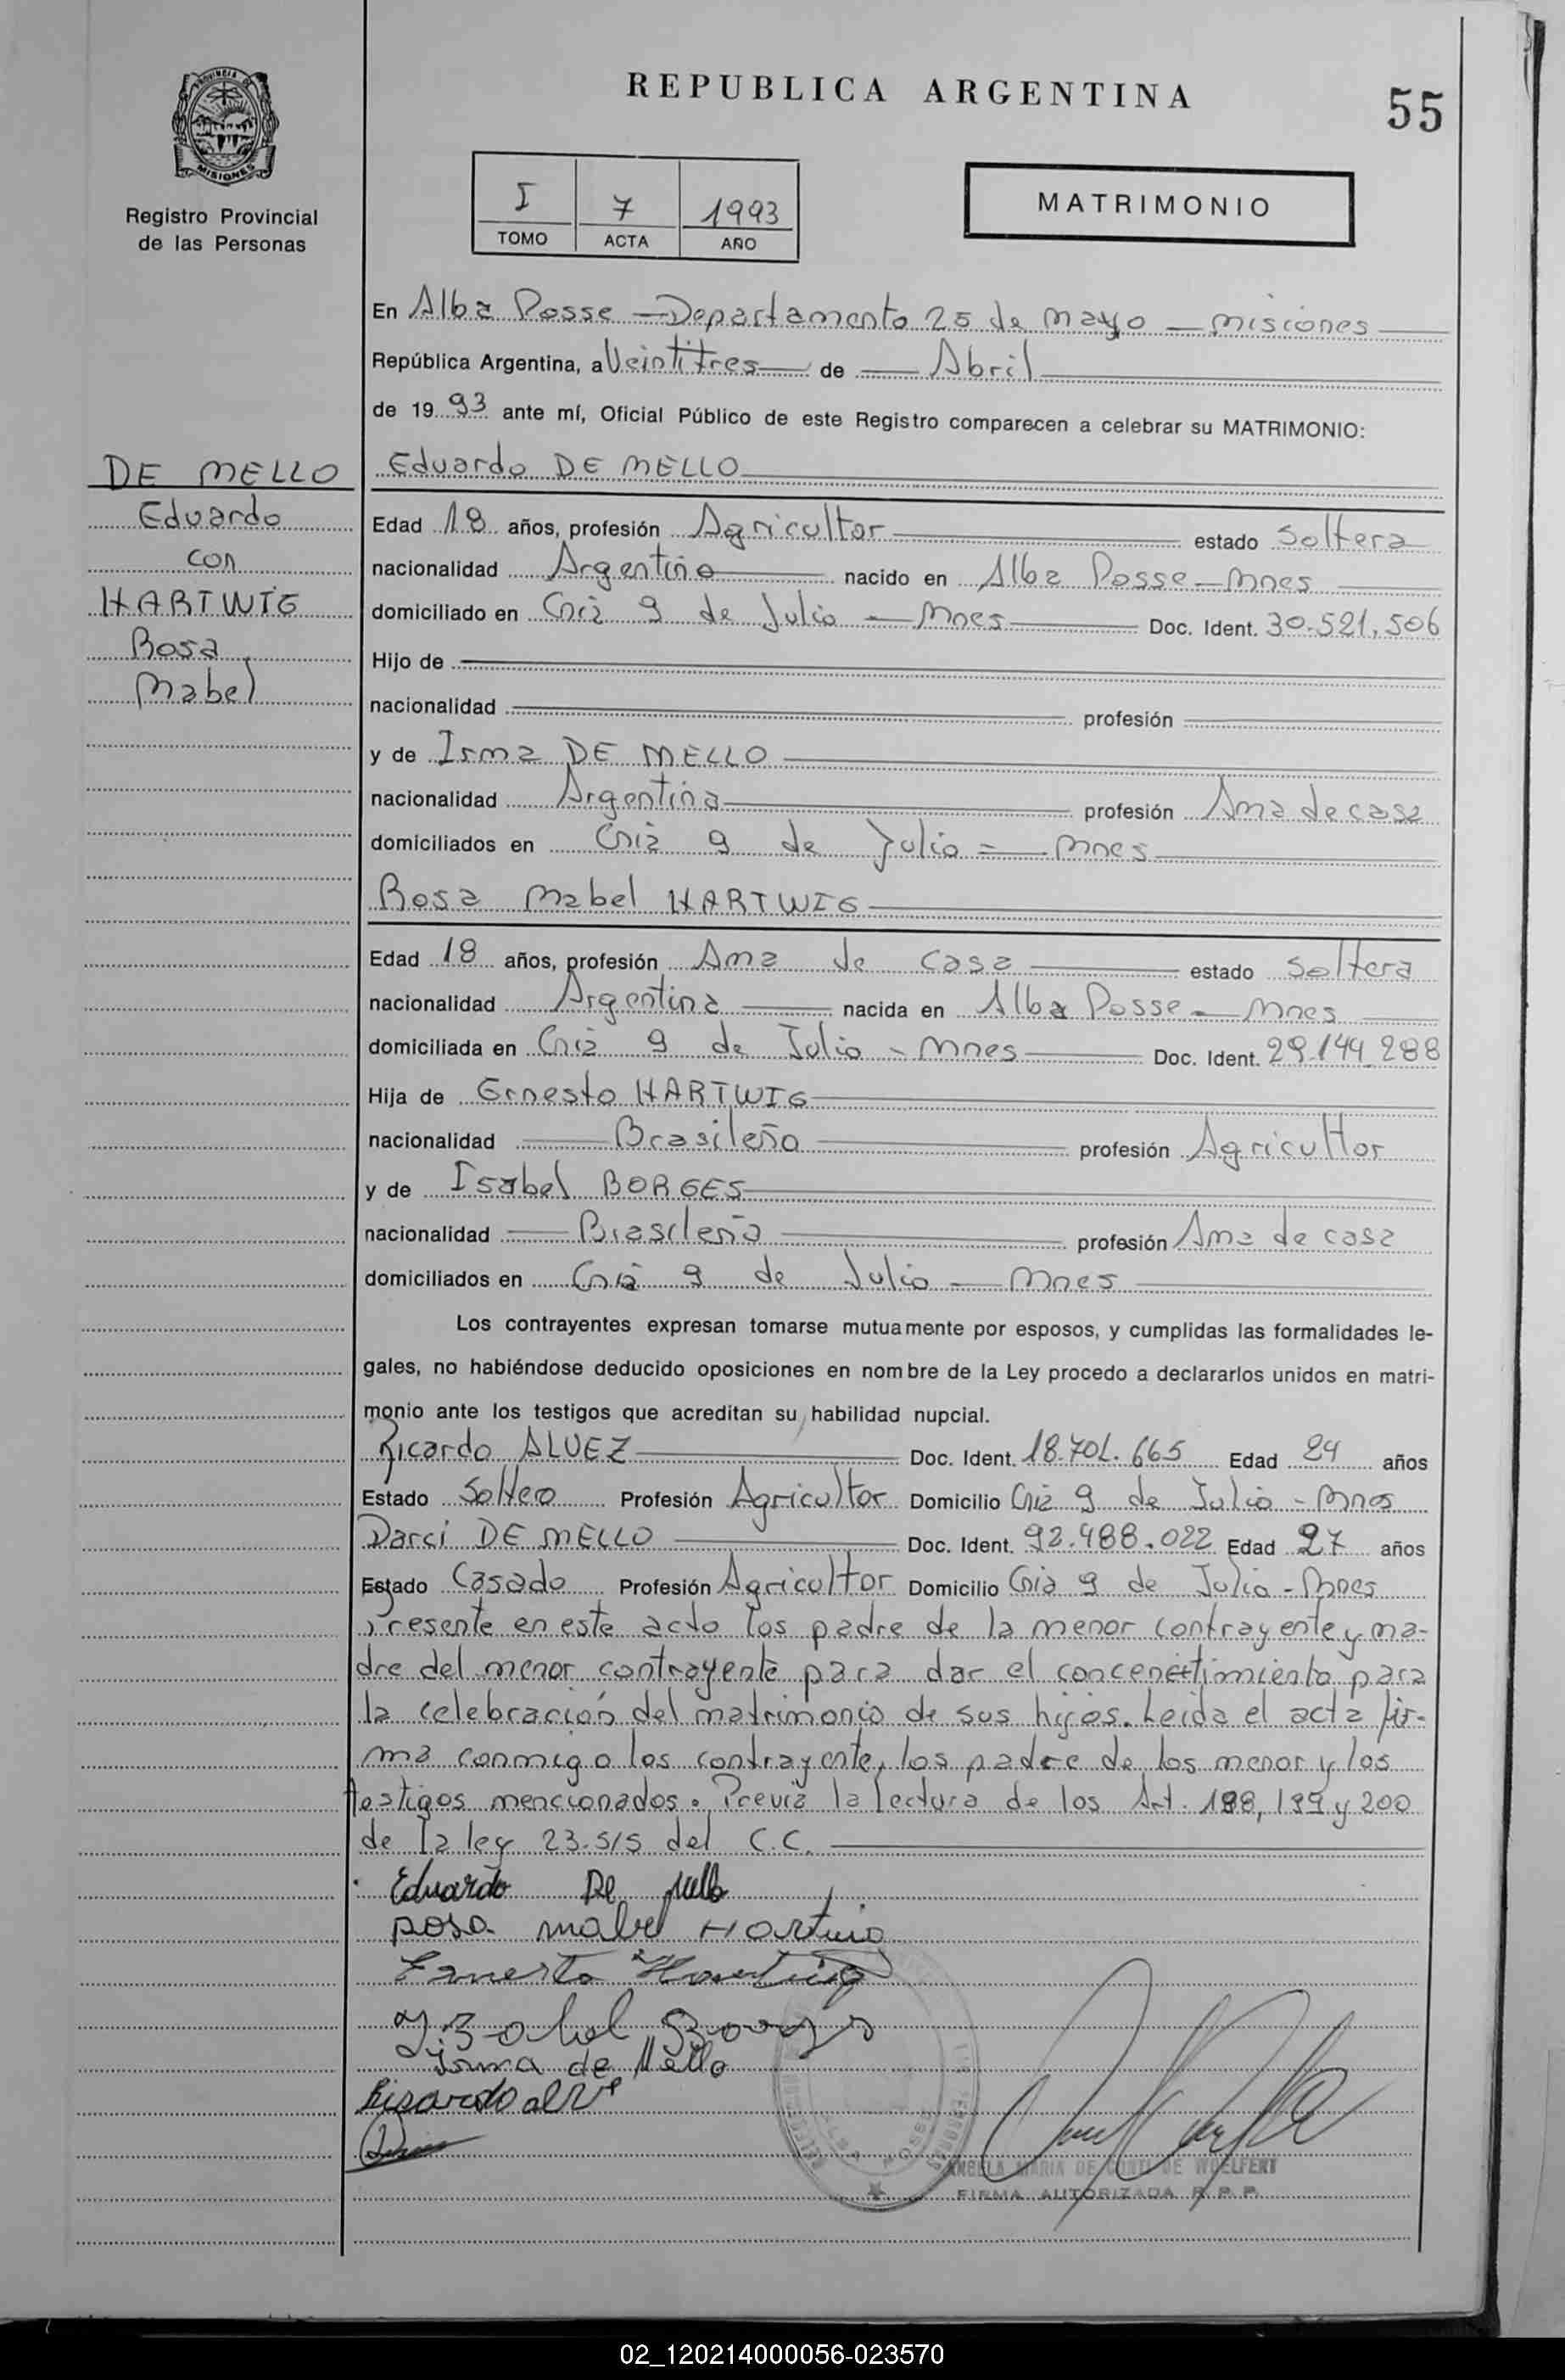 REPUBLICA ARGENTINA
55
PROVINCIA DE
MISIONES
Registro Provincial
de las Personas
I 7 1993
TOMO ACTA AÑO
MATRIMONIO
En Alba Posse — Departamento 25 de Mayo — Misiones
República Argentina, a Veintitres de Abril
de 19 93 ante mí, Oficial Público de este Registro comparecen a celebrar su MATRIMONIO:
DE MELLO
Eduardo
con
HARTWIG
Rosa
Mabel
Eduardo DE MELLO
Edad 18 años, profesión Agricultor estado Soltera
nacionalidad Argentino nacido en Alba Posse — Mnes
domiciliado en Cnia 9 de Julio — Mnes Doc. Ident. 30.521.506
Hijo de
nacionalidad profesión
y de Irma DE MELLO
nacionalidad Argentina profesión Ama de casa
domiciliados en Cnia 9 de Julio = Mnes
Rosa Mabel HARTWIG
Edad 18 años, profesión Ama de casa estado Soltera
nacionalidad Argentina nacida en Alba Posse — Mnes
domiciliada en Cnia 9 de Julio - Mnes Doc. Ident. 29.144.288
Hija de Ernesto HARTWIG
nacionalidad Brasileño profesión Agricultor
y de Isabel BORGES
nacionalidad Brasileña profesión Ama de casa
domiciliados en Cnia 9 de Julio — Mnes
Los contrayentes expresan tomarse mutuamente por esposos, y cumplidas las formalidades le-
gales, no habiéndose deducido oposiciones en nombre de la Ley procedo a declararlos unidos en matri-
monio ante los testigos que acreditan su habilidad nupcial.
Ricardo ALVEZ Doc. Ident. 18.701.665 Edad 24 años
Estado Soltero Profesión Agricultor Domicilio Cnia 9 de Julio - Mnes
Darci DE MELLO Doc. Ident. 92.488.022 Edad 27 años
Estado Casado Profesión Agricultor Domicilio Cnia 9 de Julio - Mnes
Presente en este acto los padre de la menor contrayente y ma-
dre del menor contrayente para dar el concenetimiento para
la celebración del matrimonio de sus hijos. Leida el acta fir-
ma conmigo los contrayente, los padre de los menor y los
testigos mencionados. Previa la lectura de los Art. 198, 199 y 200
de la ley 23.515 del C.C.
Eduardo De Mello
Rosa mabel Hartwig
Ernesto Hartwig
Izabel Borges
Irma de Mello
Ricardo alve
ALBA POSSE
ANGELA MARIA DE CONTI DE WOELFERT
FIRMA AUTORIZADA R. P. P.
02_120214000056-023570